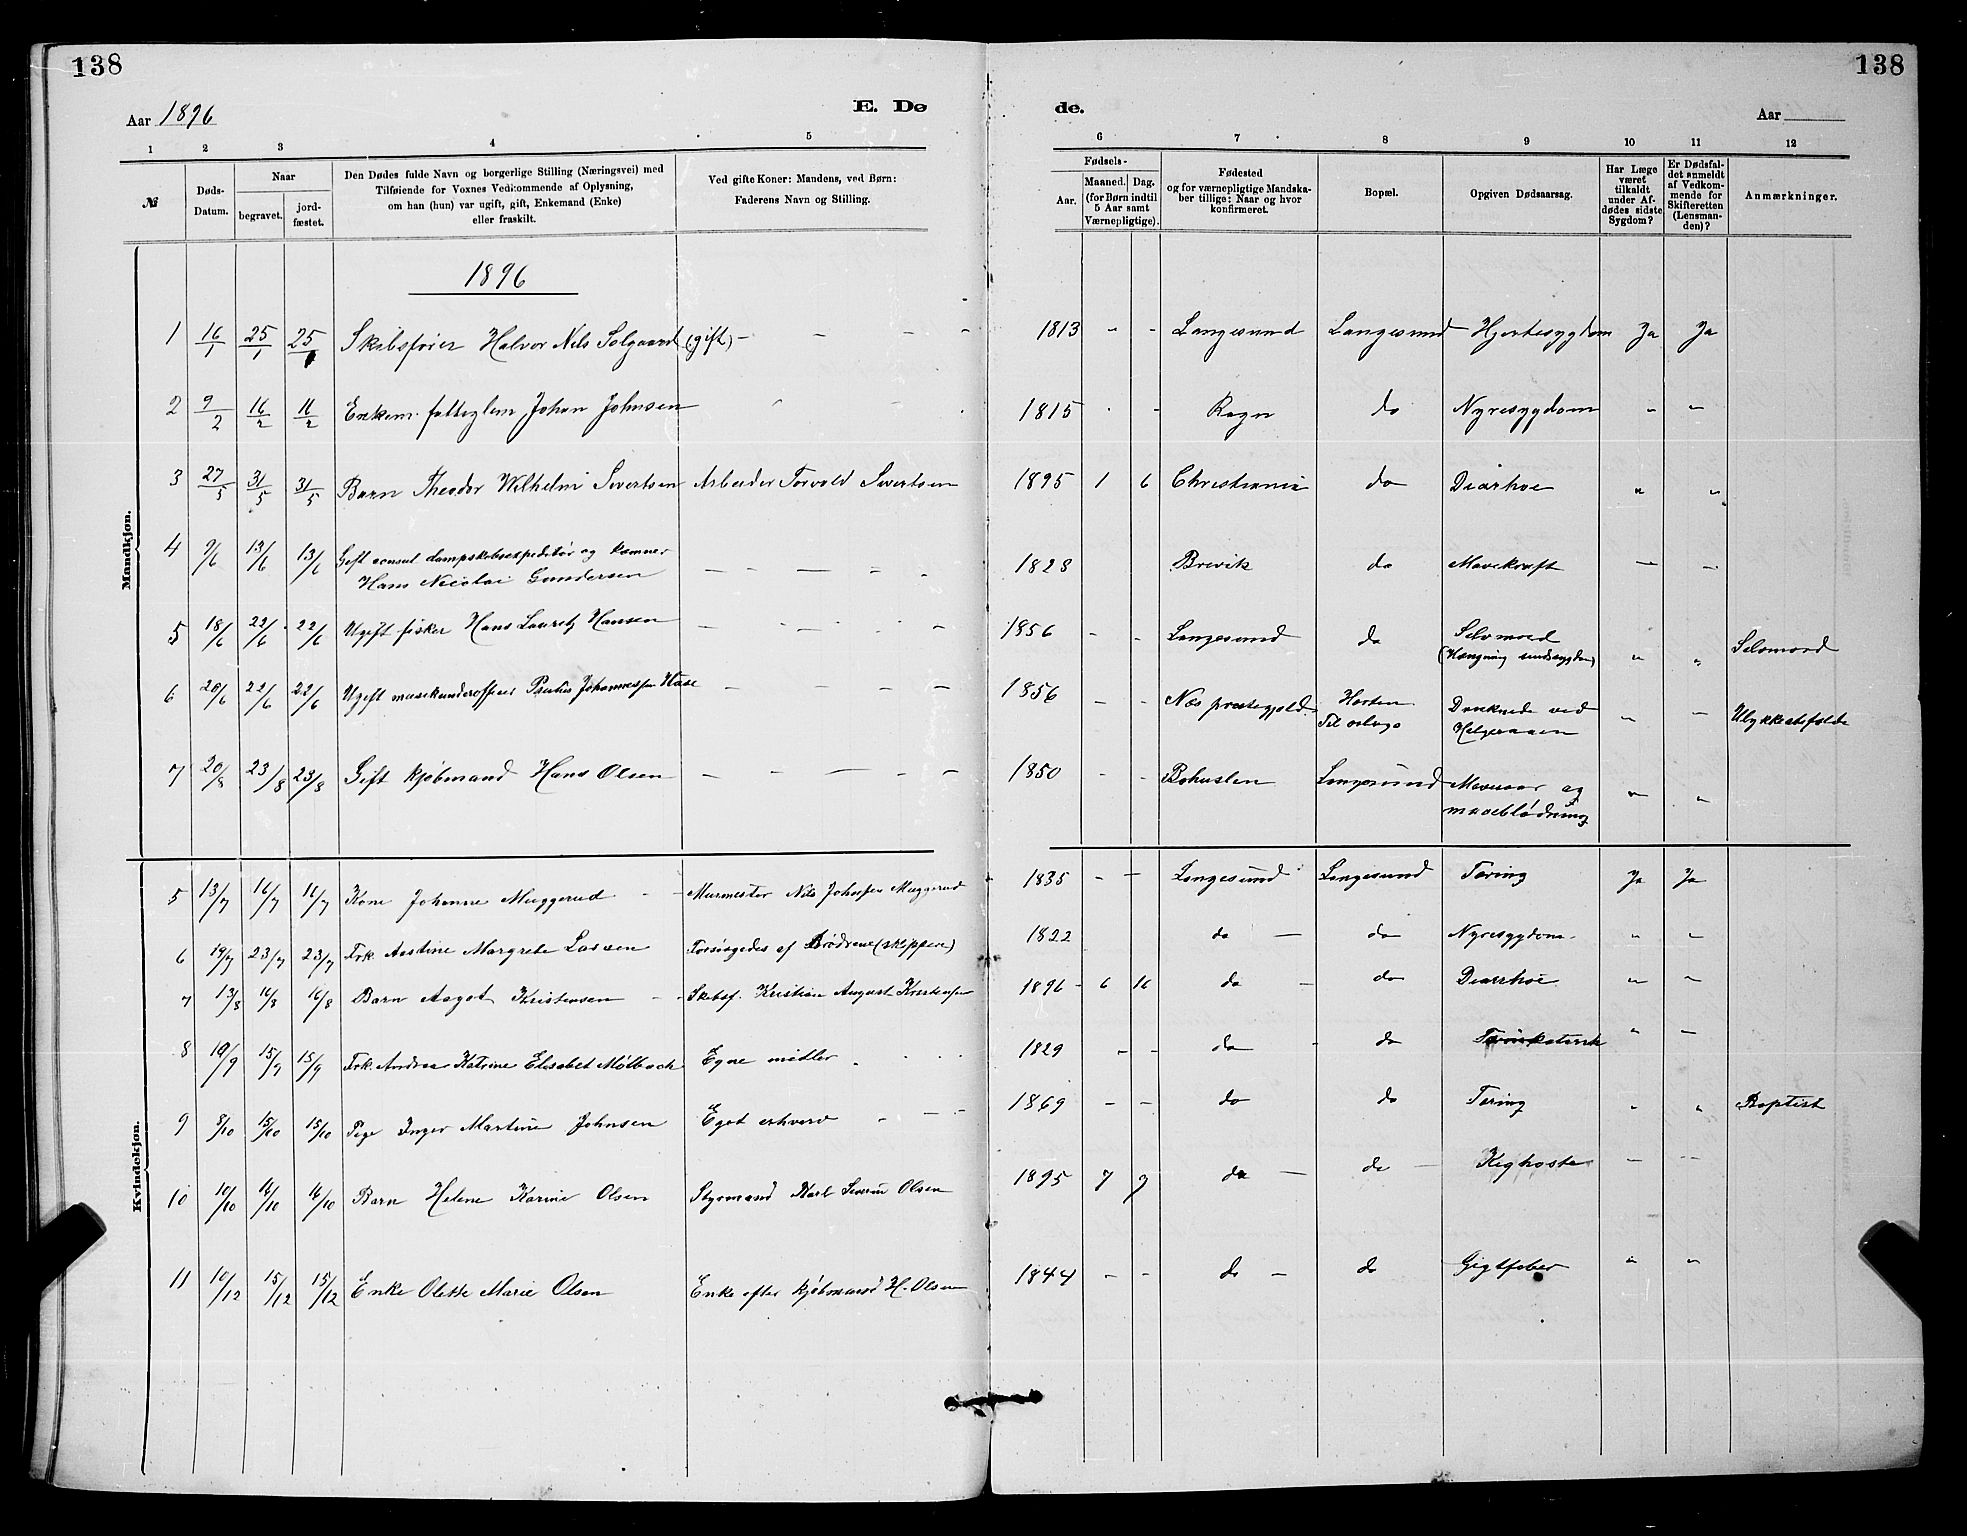 138
138
Aar 1896
E. Dø
de.
Aar
1 2 3 4 5 6 7 8 9 10 11 12
№
Døds-
Datum.
Naar
begravet.
jord-
fæstet.
Den Dødes fulde Navn og borgerlige Stilling (Næringsvei) med
Tilføiende for Voxnes Vedkommende af Oplysning,
om han (hun) var ugift, gift, Enkemand (Enke)
eller fraskilt.
Ved gifte Koner: Mandens, ved Børn:
Faderens Navn og Stilling.
Fødsels-
Aar.
Maaned. Dag.
(for Børn indtil
5 Aar samt
Værnepligtige).
Fødested
og for værnepligtige Mandska-
ber tillige: Naar og hvor
konfirmeret.
Bopæl.
Opgiven Dødsaarsag.
Har Læge
været
tilkaldt
under Af-
dødes sidste
Sygdom?
Er Dødsfal-
det anmeldt
af Vedkom-
mende for
Skifteretten
(Lensman-
den)?
Anmærkninger.
Mandkjøn.
1896
1 16/1 25/1 25/1 Skibsfører Halvor Nils Solgaard (gift) — — — — 1813 - - Langesund Langesund Hjertesygdom Ja Ja
2 9/2 16/2 16/2 Enkem. fattiglem Johan Johnsen 1815 - - do Nyresygdom " "
3 27/5 31/5 31/5 Barn Theodor Wilhelm Sivertsen Arbeider Torvald Sivertsen 1895 1 6 Christiania do Diarhoe " "
4 9/6 13/6 13/6 Gift consul dampskibsexpeditør og kæmner
Hans Nicolai Gundersen — — — — - 1828 Brevik do Mavekræft — —
5 18/6 22/6 22/6 Ugift fisker Hans Lauritz Hansen — - — - — 1856 - - Langesund do Selvmord
(Hængning sindssygdom) " " Selvmord
6 20/6 22/6 22/6 Ugift musikunderofficer Johannessen — - — - — 1856 - - Næs præstegjeld Horten
Druknede ved
Helgeraaen " — Ulykkestefælde
7 20/8 23/8 23/8 Gift kjøbmand Hans Olsen — - — - — 1850 - - Bohuslen Langesund Mavesaar og
maveblødning " "
Kvindekjøn.
5 13/7 16/7 16/7 Kone Johanne Muggerud - - Murmester Nils Johnsen Muggerud 1835 - — Langesund Langesund Tæring Ja Ja
6 19/7 23/7 23/7 Frk. Margrete Lassen Forsørgedes af Brødrene (skippere) 1822 do — do Nyresygdom. " —
7 13/8 16/8 16/8 Barn Aagot Kristensen - - Skibsf. Kristian August Kristensen 1896 - 6 16 do - do Diarrhoe " —
8 10/9 15/9 15/9 Frk. Andrea Katrine Elisabet Mølbach Egne midler 1829 - - do - do " —
9 8/10 15/10 15/10 Pige Inger Martine Johnsen Eget erhverv - — — 1869 - - do do Tæring " " Baptist
10 10/10 16/10 16/10 Barn Helene Karine Olsen Styrmand Karl Severin Olsen 1895 7 9 do — do — Kighoste — —
11 10/12 15/12 15/12 Enke Olette Marie Olsen Enke efter kjøbmand H. Olsen 1844 - - do — do Gigtfeber " "